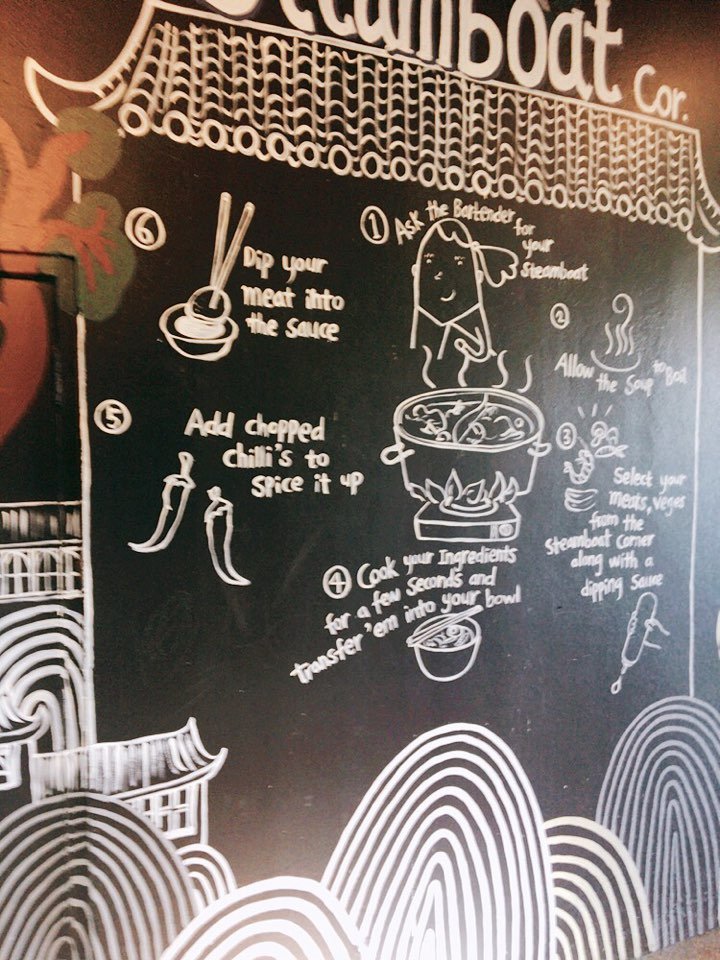 Steamboat Cor.
① Ask the Bartender for
your
Steamboat
②
Allow the Soup to Boil
③
Select your
meats, veges
from the
Steamboat Corner
along with a
dipping Sauce
④ Cook your Ingredients
for a few seconds and
transfer 'em into your bowl
⑤
Add chopped
chilli's to
Spice it up
⑥
Dip your
meat into
the sauce